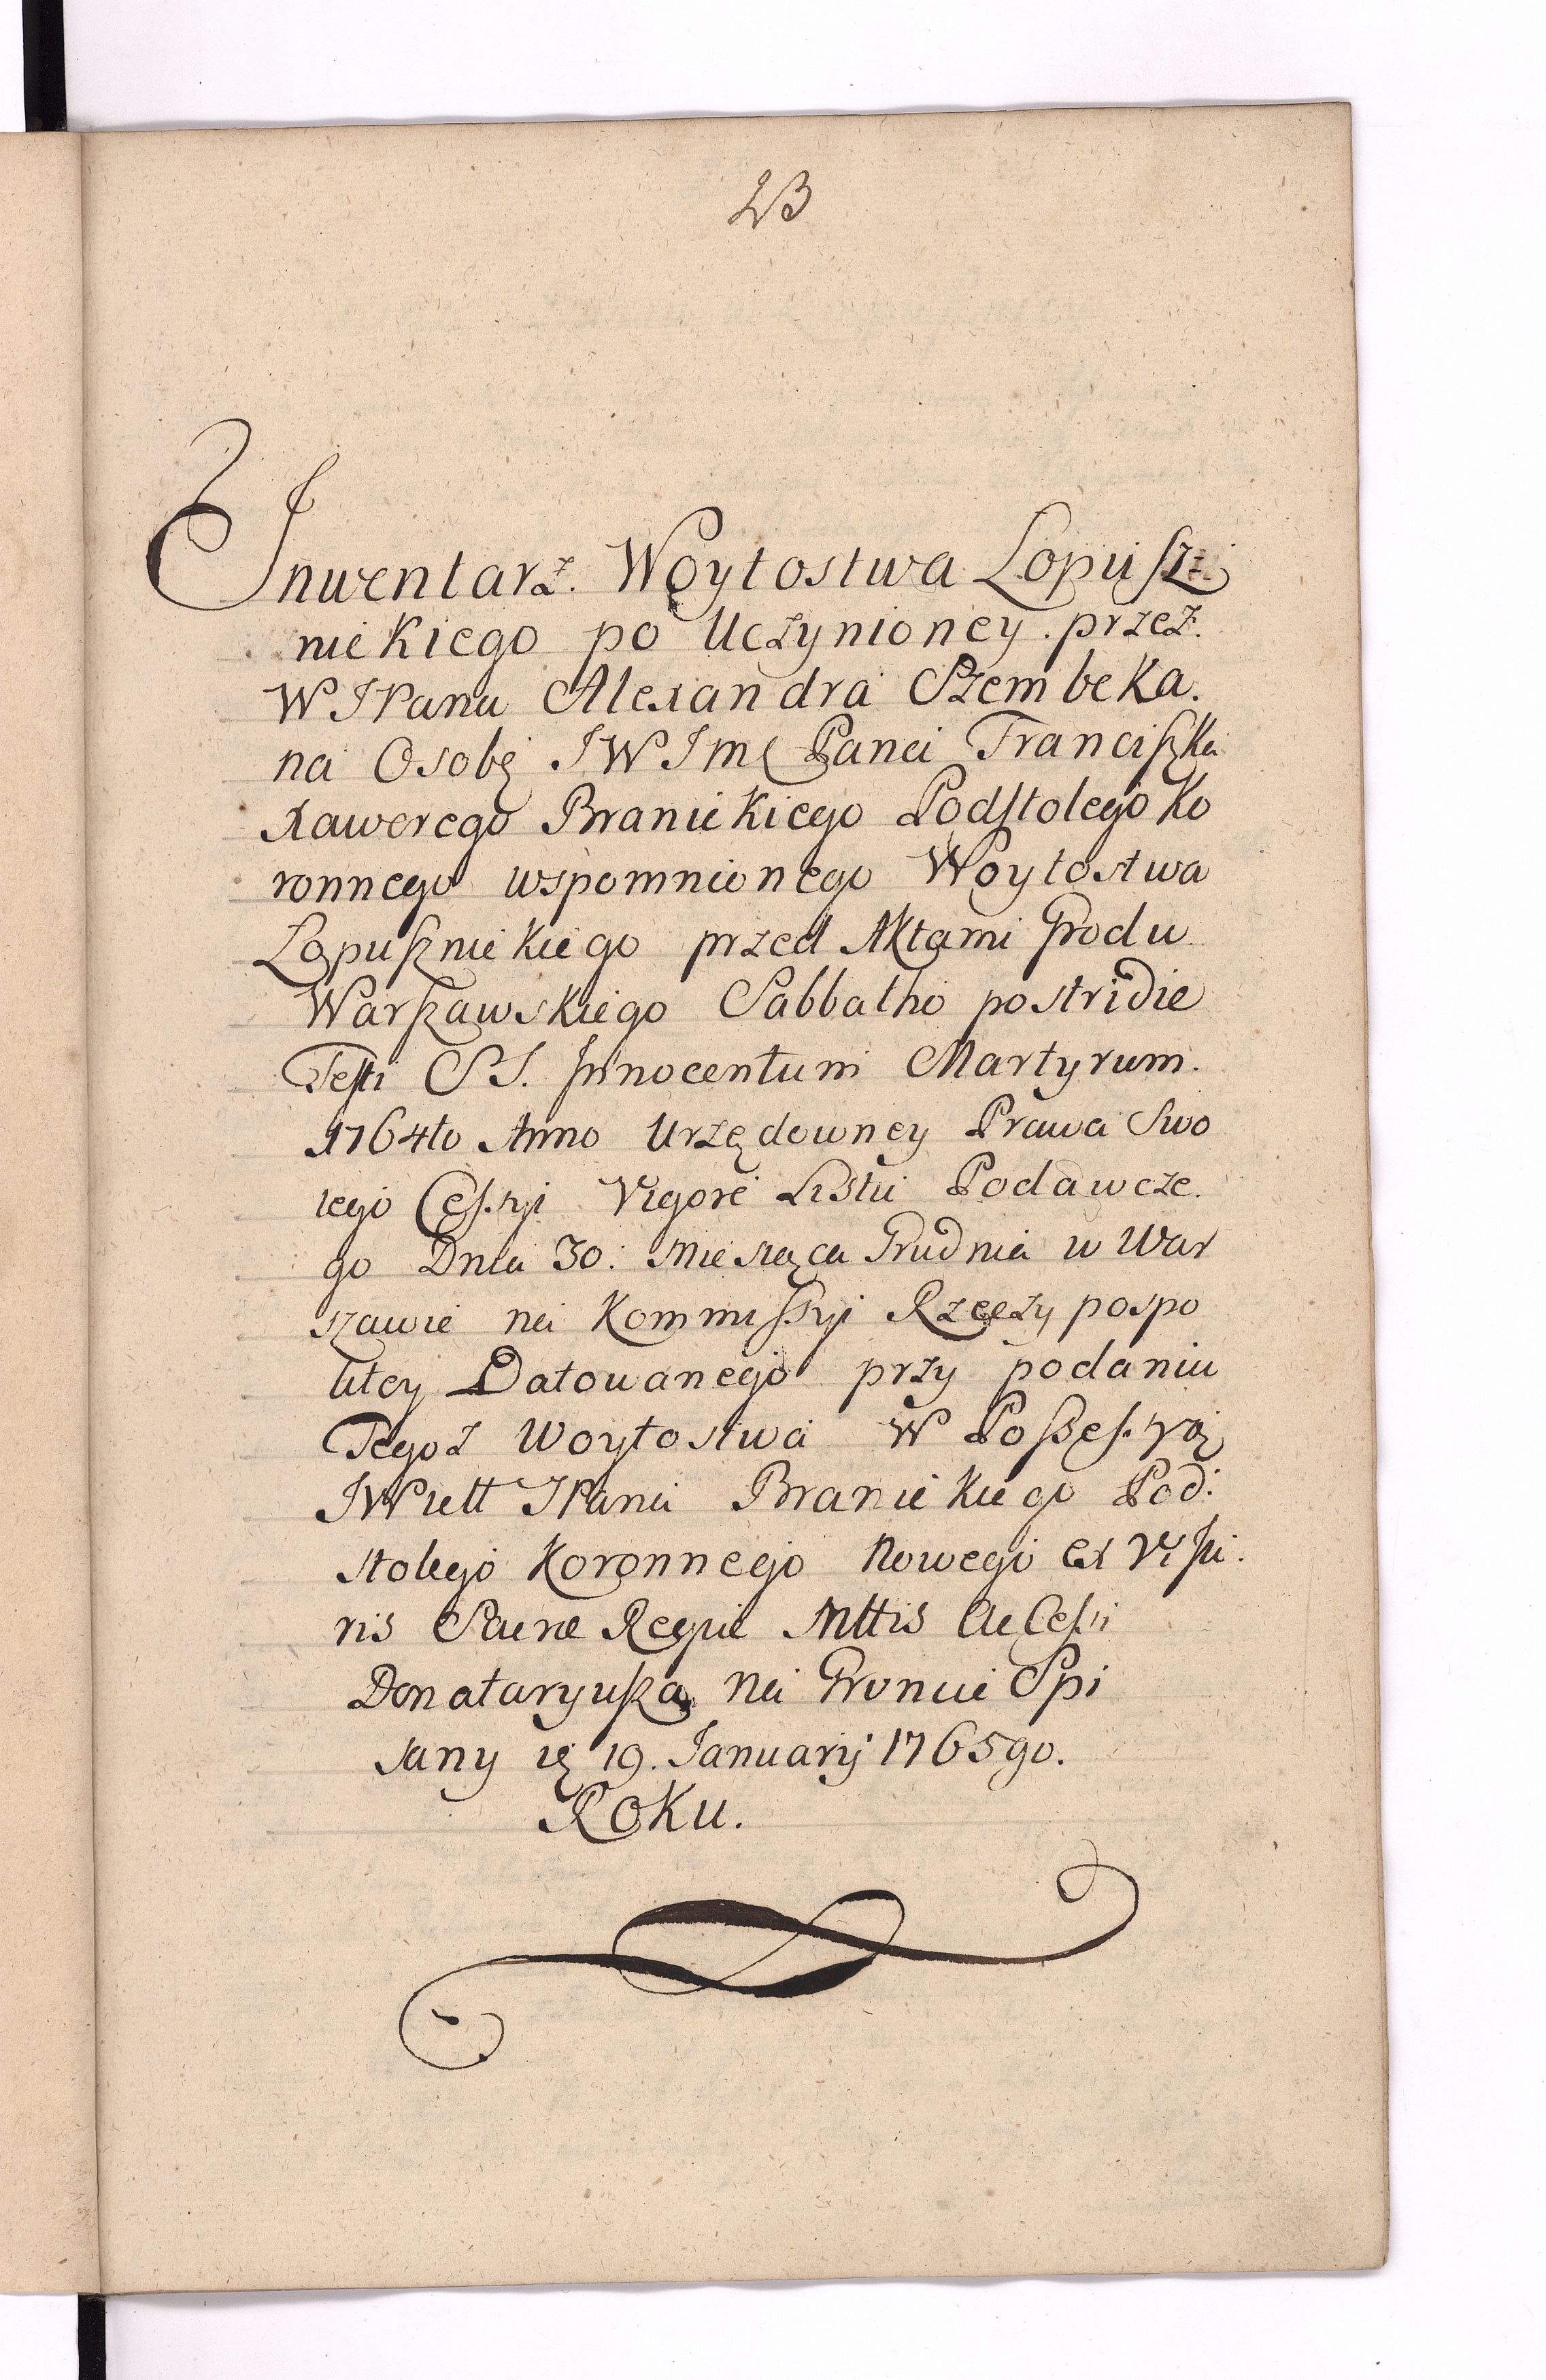 23
Inwentarz. Woytostwa Lopusz
nickiego po Uczynioney. przez.
WJPana Alexandra Szembeka.
na Osobę JWJmć Pana Franciszka
Xawerego Branickiego Podstolego Ko
ronnego wspomnionego Woytostwa
Lopusznickiego przed Aktami Grodu
Warszawskiego Sabbatho postridie
Festi SS. Innocentum Martyrum.
1764to Anno Urzędowney Prawa Swo
iego Cessyi Vigore Listu Podawcze.
go Dnia 30: Miesiąca Grudnia w War
szawie na Kommissyi Rzeczy pospo
litey Datowanego przy podaniu
Tegoż Woytostwa W Possessyą
JWielt JPana Branickiego Pod:
stolego Koronnego Nowego ex
ris Sacræ Regiæ Mttis
Donataryusza Na Gruncie Spi
sany ię 19. Januarij 1765go.
Roku.